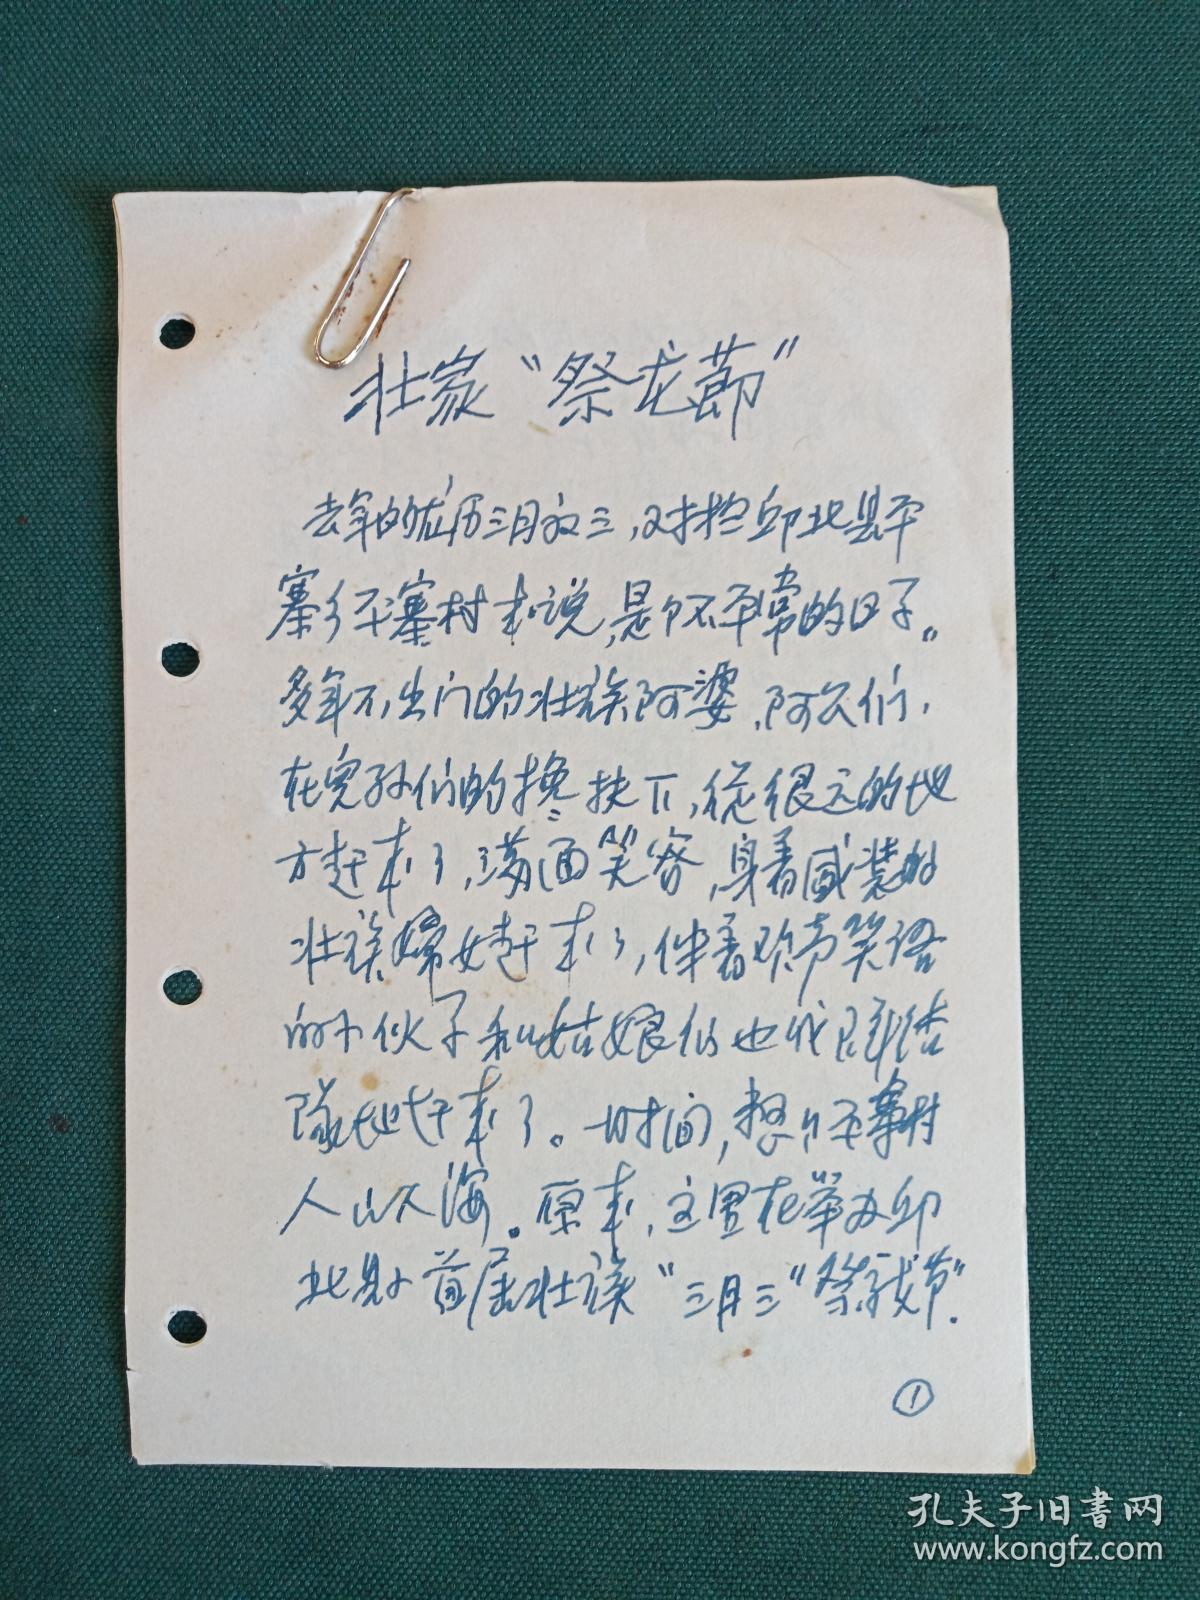 壮家“祭龙節”
去年的农历三月初三，对于邱北县平
寨乡平寨村来说，是个不平常的日子。
多年不出门的壮族阿婆、阿公们，
在儿孙们的搀扶下，從很远的地
方赶来了，满面笑容，身着盛装的
壮族婦女赶来了，伴着欢声笑语
的小伙子和姑娘们也成群结
队地赶来了。一时间，整个平寨村
人山人海。原来，这里在举办邱
北县首届壮族“三月三”祭龙节”.
①
孔夫子旧書网
www.kongfz.com